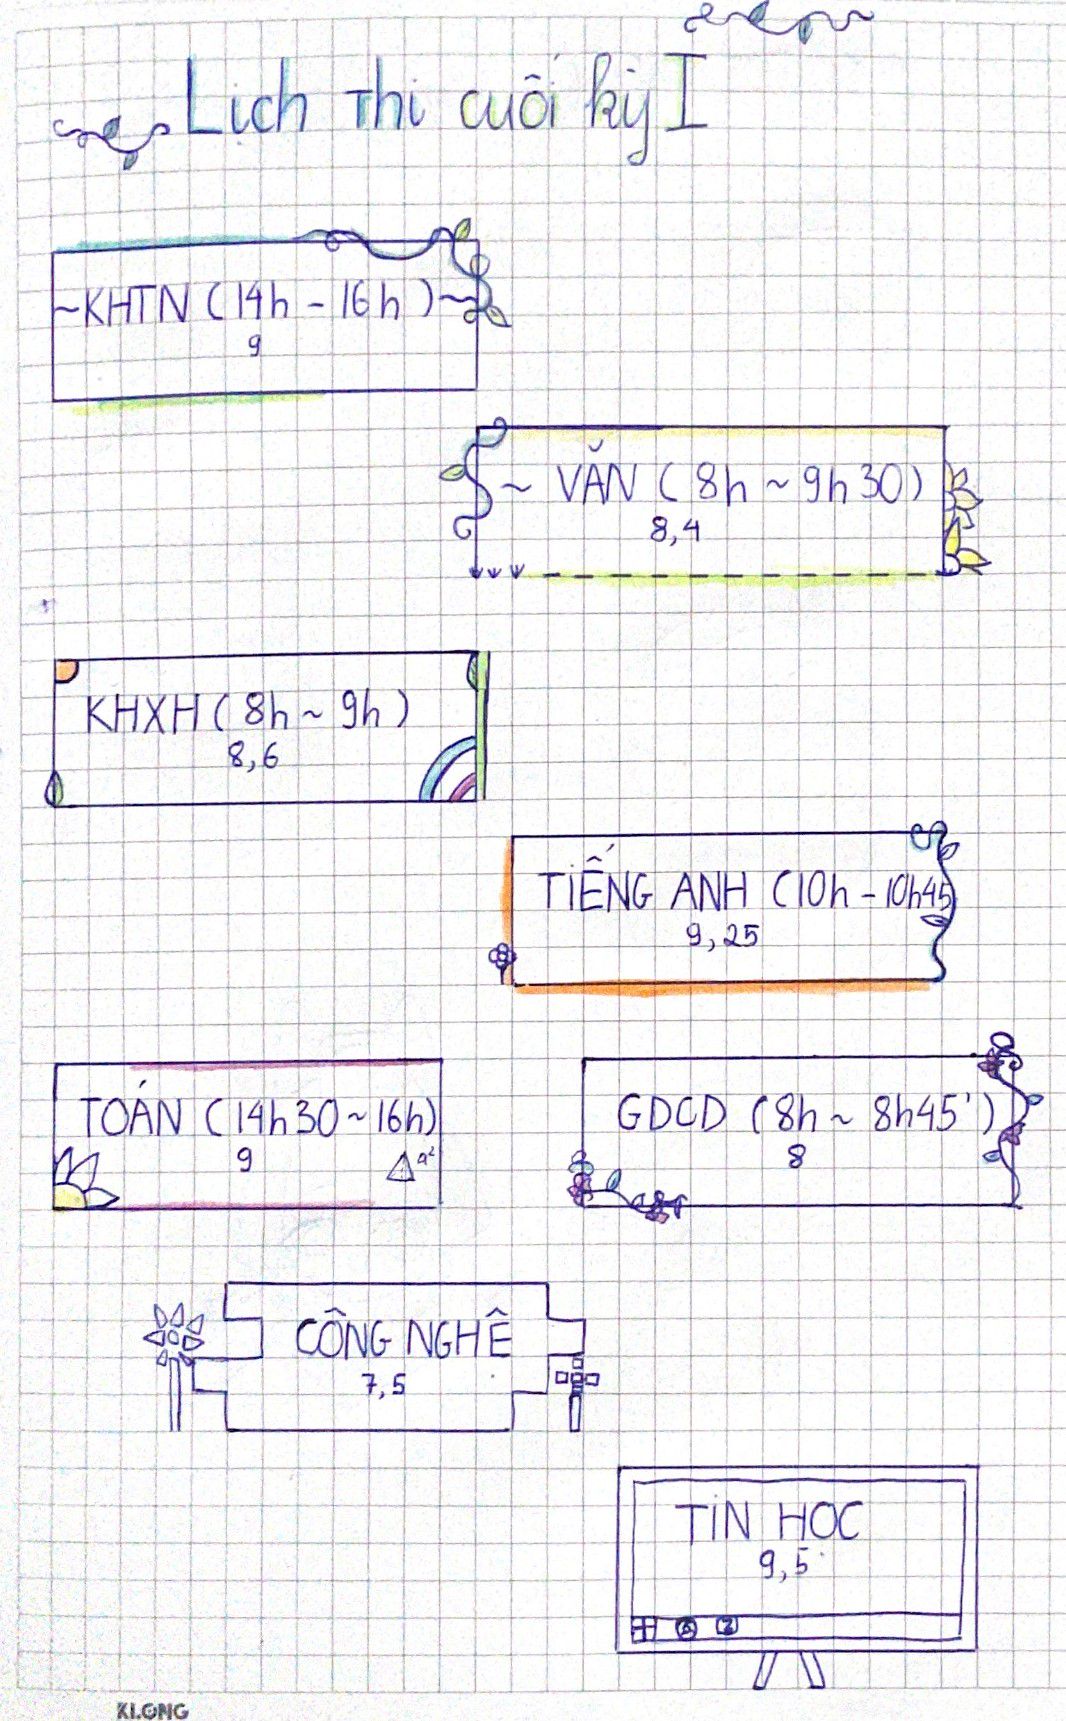 Lịch thi cuối kỳ I
~KHTN (14h - 16h)~
9
~ VĂN (8h ~ 9h30)
8,4
KHXH (8h ~ 9h)
8,6
TIẾNG ANH (10h - 10h45)
9,25
TOÁN (14h30 ~ 16h)
9
a²
GDCD (8h ~ 8h45')
8
CÔNG NGHÊ
7,5
TIN HOC
9,5
KLONG